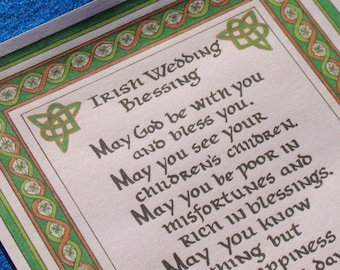 Irish Wedding
Blessing
May God be with you
and bless you.
May you see your
children's children.
May you be poor in
misfortunes and
rich in blessings.
May you know
thing but
happiness
day